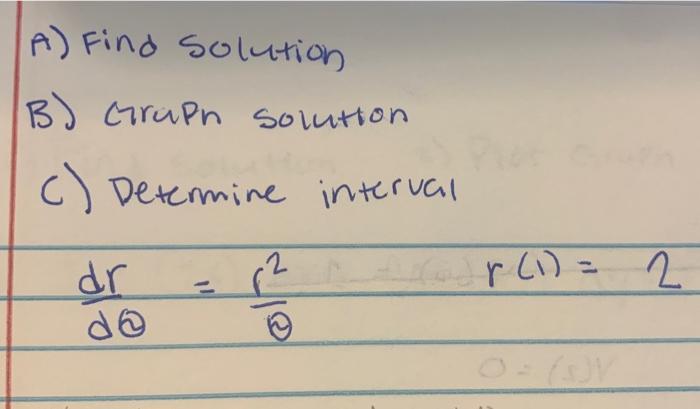 A) Find Solution
B) Graph solution
C) Determine interval
dr/dθ = r²/θ r(1) = 2